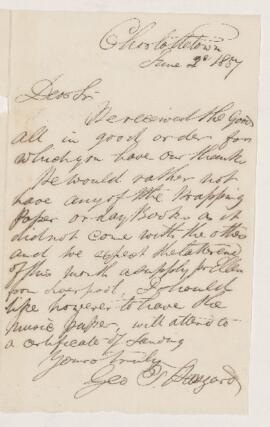 Charlottetown
June 2d 1857
Dear Sir
We received the Goods
all in good order for
which you have our thanks
We would rather not
have any of the Wrapping
Paper or day Books as it
did not come with the other
and we expect the latter end
of this month a supply
from Liverpool, I should
like however to have the
music paper, will attend to
a certificate of landing
Yours truly
Geo T. Haszard